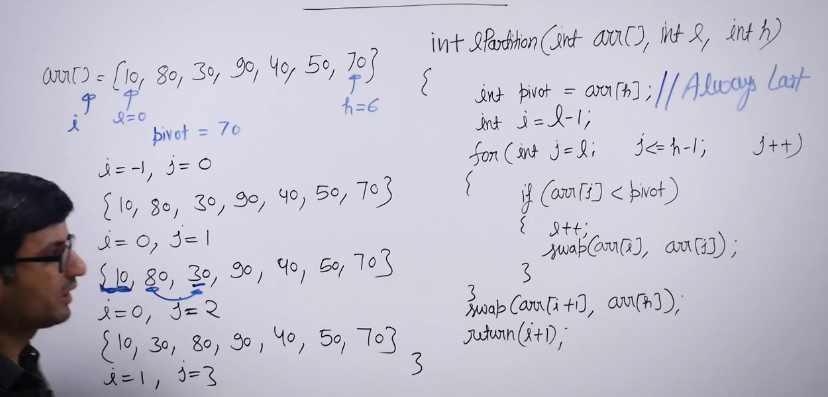 arr[] = {10, 80, 30, 90, 40, 50, 70}
i l=0 h=6
pivot = 70
i=-1, j=0
{10, 80, 30, 90, 40, 50, 70}
i=0, j=1
{10, 80, 30, 90, 40, 50, 70}
i=0, j=2
{10, 30, 80, 90, 40, 50, 70}
i=1, j=3
int lPartition(int arr[], int l, int h)
{
int pivot = arr[h]; // Always Last
int i=l-1;
for(int j=l; j<=h-1; j++)
{
if (arr[j] < pivot)
{ i++;
swap(arr[i], arr[j]);
}
}
swap(arr[i+1], arr[h]);
return(i+1);
}